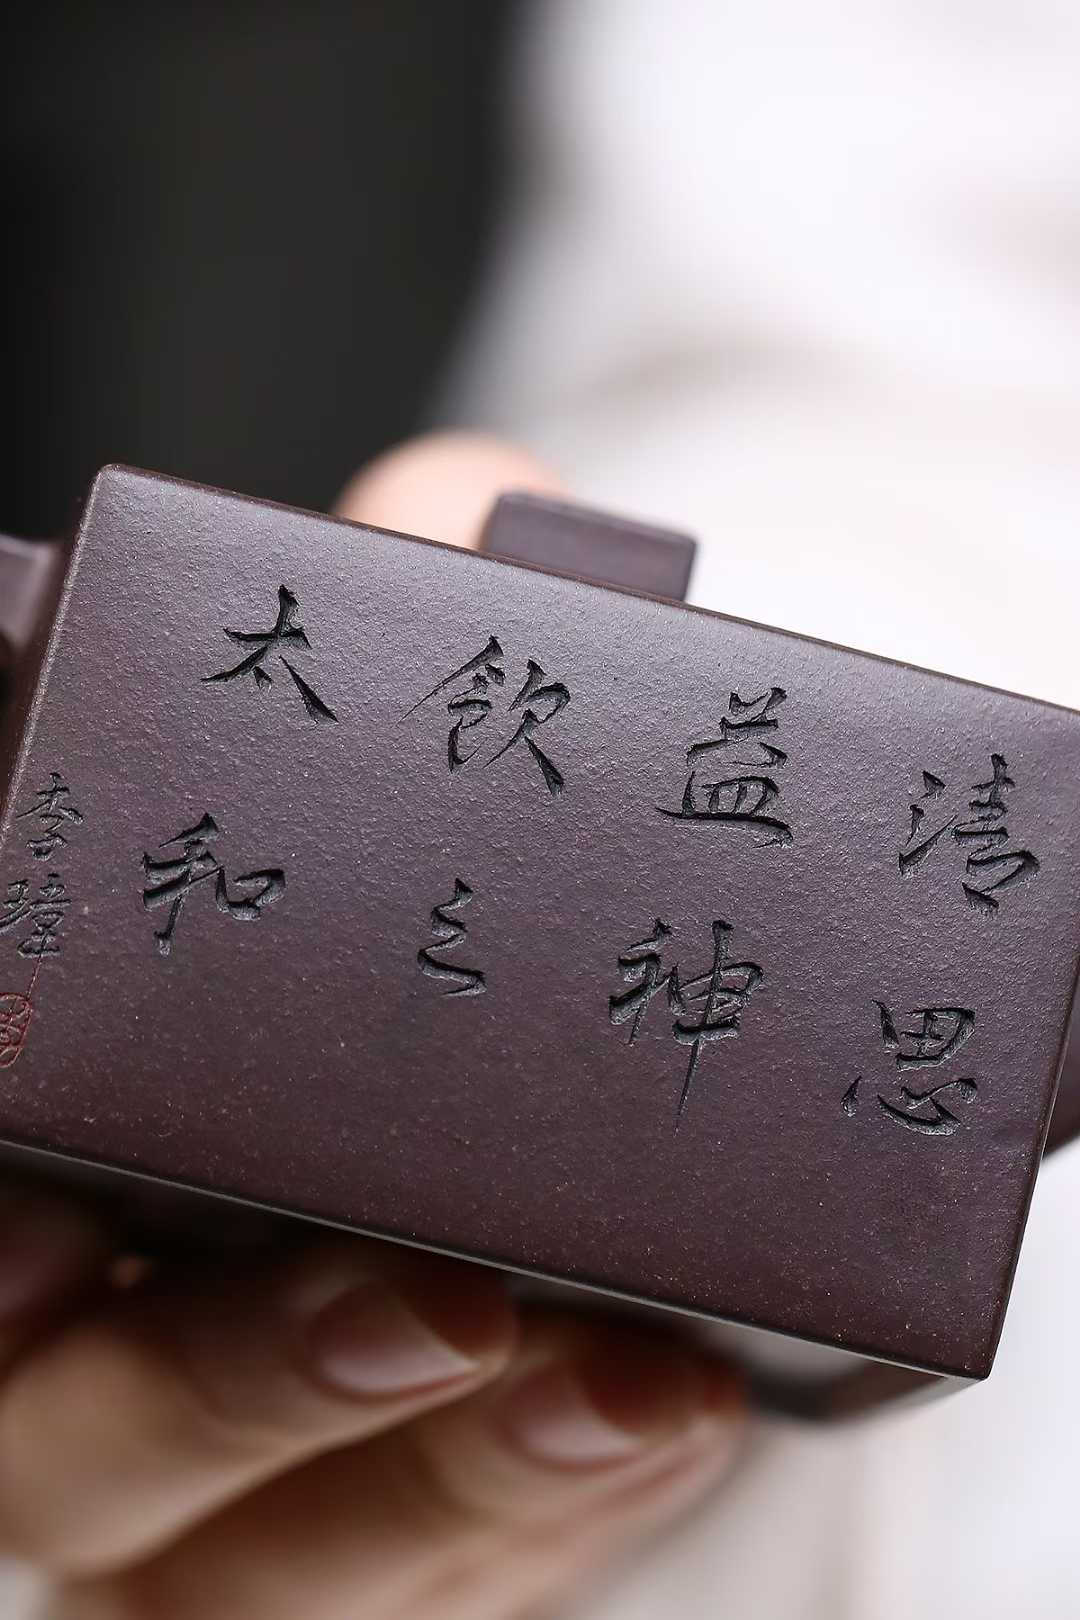 清思
益神
飲之
太和
李璋